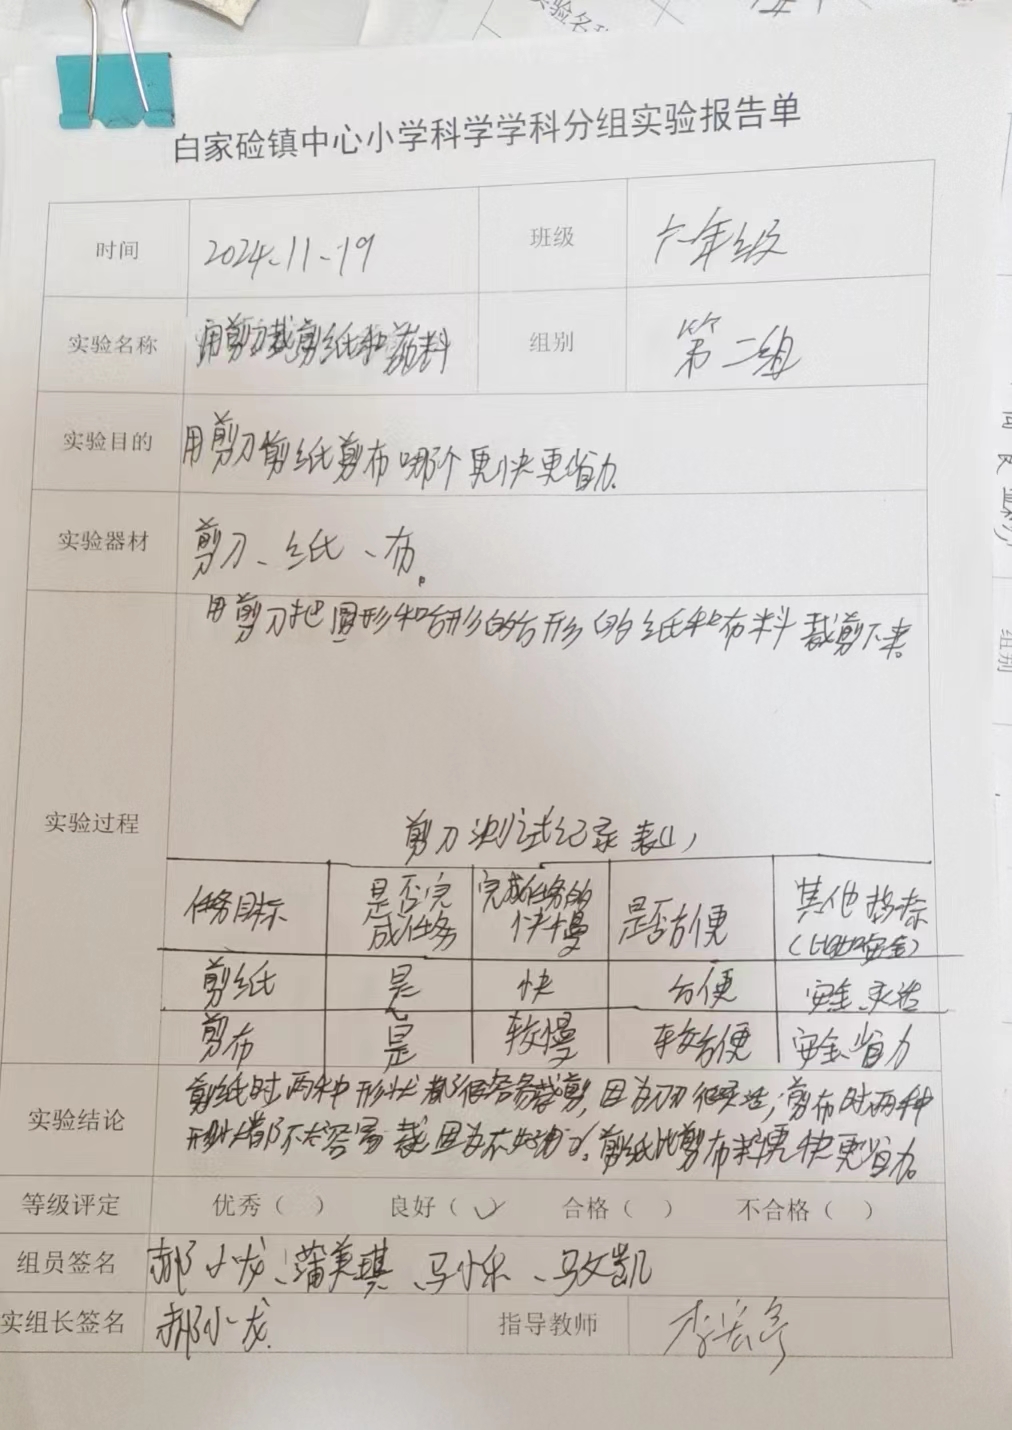 白家硷镇中心小学科学学科分组实验报告单
时间 2024.11-19 班级 六年级
实验名称 用剪刀裁剪纸和布料 组别 第二组
实验目的 用剪刀剪纸剪布哪个更快更省力.
实验器材 剪刀、纸、布。
用剪刀把圆形和方形的纸和布料裁剪下来。
实验过程
剪刀测试记录表(1)
任务目标 是否完成任务 完成任务的快慢 是否方便 其他指标(比如安全)
剪纸 是 快 方便 安全 灵活
剪布 是 较慢 较方便 安全省力
实验结论
剪纸时,两种形状都很容易裁剪,因为刀刃很灵活;剪布时两种
形状都不太容易裁,因为不好使力。剪纸比剪布料更快更省力。
等级评定 优秀( ) 良好(✓) 合格( ) 不合格( )
组员签名 郝小龙、蒲美琪、马小乐、马文凯
实组长签名 郝小龙. 指导教师
组别